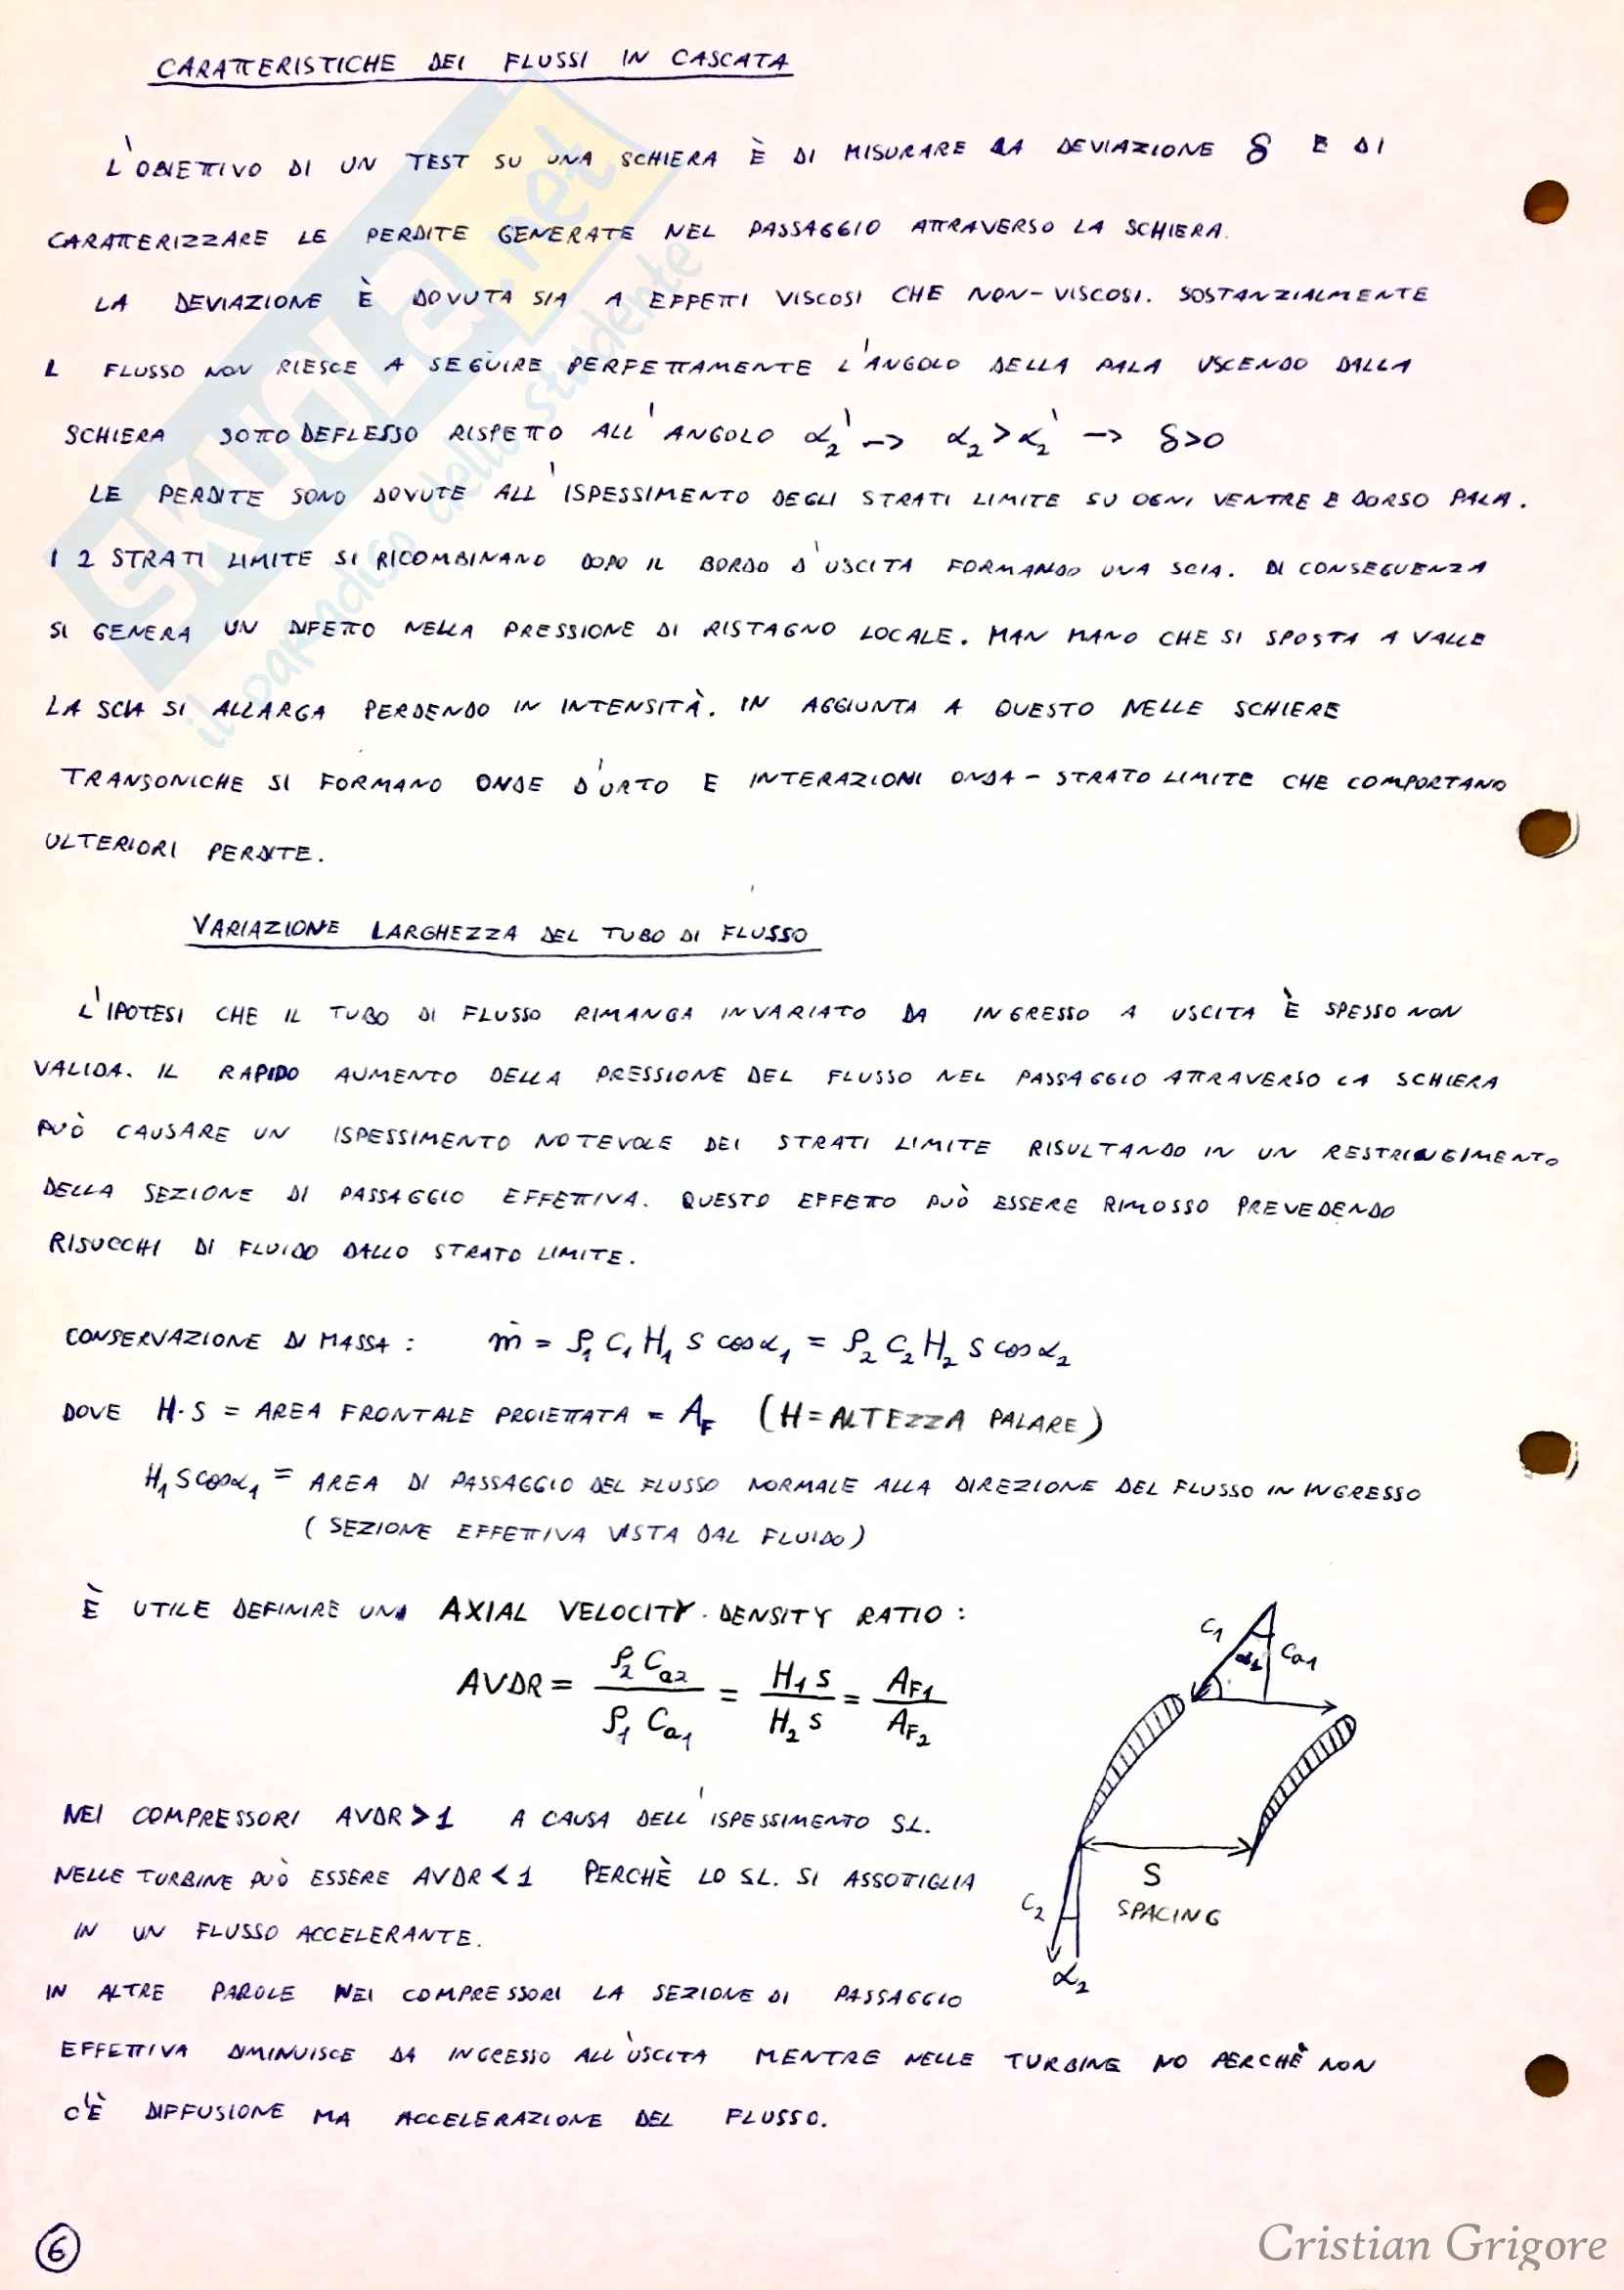 CARATTERISTICHE DEI FLUSSI IN CASCATA
L'OBIETTIVO DI UN TEST SU UNA SCHIERA È DI MISURARE LA DEVIAZIONE δ E DI
CARATTERIZZARE LE PERDITE GENERATE NEL PASSAGGIO ATTRAVERSO LA SCHIERA.
LA DEVIAZIONE È DOVUTA SIA A EFFETTI VISCOSI CHE NON-VISCOSI. SOSTANZIALMENTE
L FLUSSO NON RIESCE A SEGUIRE PERFETTAMENTE L'ANGOLO DELLA PALA USCENDO DALLA
SCHIERA SOTTO DEFLESSO RISPETTO ALL'ANGOLO α₂' -> α₂ > α₂' -> δ>0
LE PERDITE SONO DOVUTE ALL'ISPESSIMENTO DEGLI STRATI LIMITE SU OGNI VENTRE E DORSO PALA.
I 2 STRATI LIMITE SI RICOMBINANO DOPO IL BORDO D'USCITA FORMANDO UNA SCIA. DI CONSEGUENZA
SI GENERA UN DIFETTO NELLA PRESSIONE DI RISTAGNO LOCALE. MAN MANO CHE SI SPOSTA A VALLE
LA SCIA SI ALLARGA PERDENDO IN INTENSITÀ. IN AGGIUNTA A QUESTO NELLE SCHIERE
TRANSONICHE SI FORMANO ONDE D'URTO E INTERAZIONI ONDA-STRATO LIMITE CHE COMPORTANO
ULTERIORI PERDITE.
VARIAZIONE LARGHEZZA DEL TUBO DI FLUSSO
L'IPOTESI CHE IL TUBO DI FLUSSO RIMANGA INVARIATO DA INGRESSO A USCITA È SPESSO NON
VALIDA. IL RAPIDO AUMENTO DELLA PRESSIONE DEL FLUSSO NEL PASSAGGIO ATTRAVERSO LA SCHIERA
PUÒ CAUSARE UN ISPESSIMENTO NOTEVOLE DEI STRATI LIMITE RISULTANDO IN UN RESTRINGIMENTO
DELLA SEZIONE DI PASSAGGIO EFFETTIVA. QUESTO EFFETTO PUÒ ESSERE RIMOSSO PREVEDENDO
RISUCCHI DI FLUIDO DALLO STRATO LIMITE.
CONSERVAZIONE DI MASSA : ṁ = ρ₁ C₁ H₁ S cosα₁ = ρ₂ C₂ H₂ S cosα₂
DOVE H·S = AREA FRONTALE PROIETTATA = A_F (H = ALTEZZA PALARE)
H₁ S cosα₁ = AREA DI PASSAGGIO DEL FLUSSO NORMALE ALLA DIREZIONE DEL FLUSSO IN INGRESSO
(SEZIONE EFFETTIVA VISTA DAL FLUIDO)
È UTILE DEFINIRE UNA AXIAL VELOCITY-DENSITY RATIO :
AVDR = ρ₂ Ca₂ / ρ₁ Ca₁ = H₁ S / H₂ S = A_F1 / A_F2
C₁ α₁ Ca₁
NEI COMPRESSORI AVDR > 1 A CAUSA DELL'ISPESSIMENTO S.L.
NELLE TURBINE PUÒ ESSERE AVDR < 1 PERCHÈ LO S.L. SI ASSOTTIGLIA
IN UN FLUSSO ACCELERANTE.
S
SPACING
C₂
α₂
IN ALTRE PAROLE NEI COMPRESSORI LA SEZIONE DI PASSAGGIO
EFFETTIVA DIMINUISCE DA INGRESSO ALL'USCITA MENTRE NELLE TURBINE NO PERCHÈ NON
C'È DIFFUSIONE MA ACCELERAZIONE DEL FLUSSO.
6
Cristian Grigore
SKUOLA.net
il paradiso dello studente